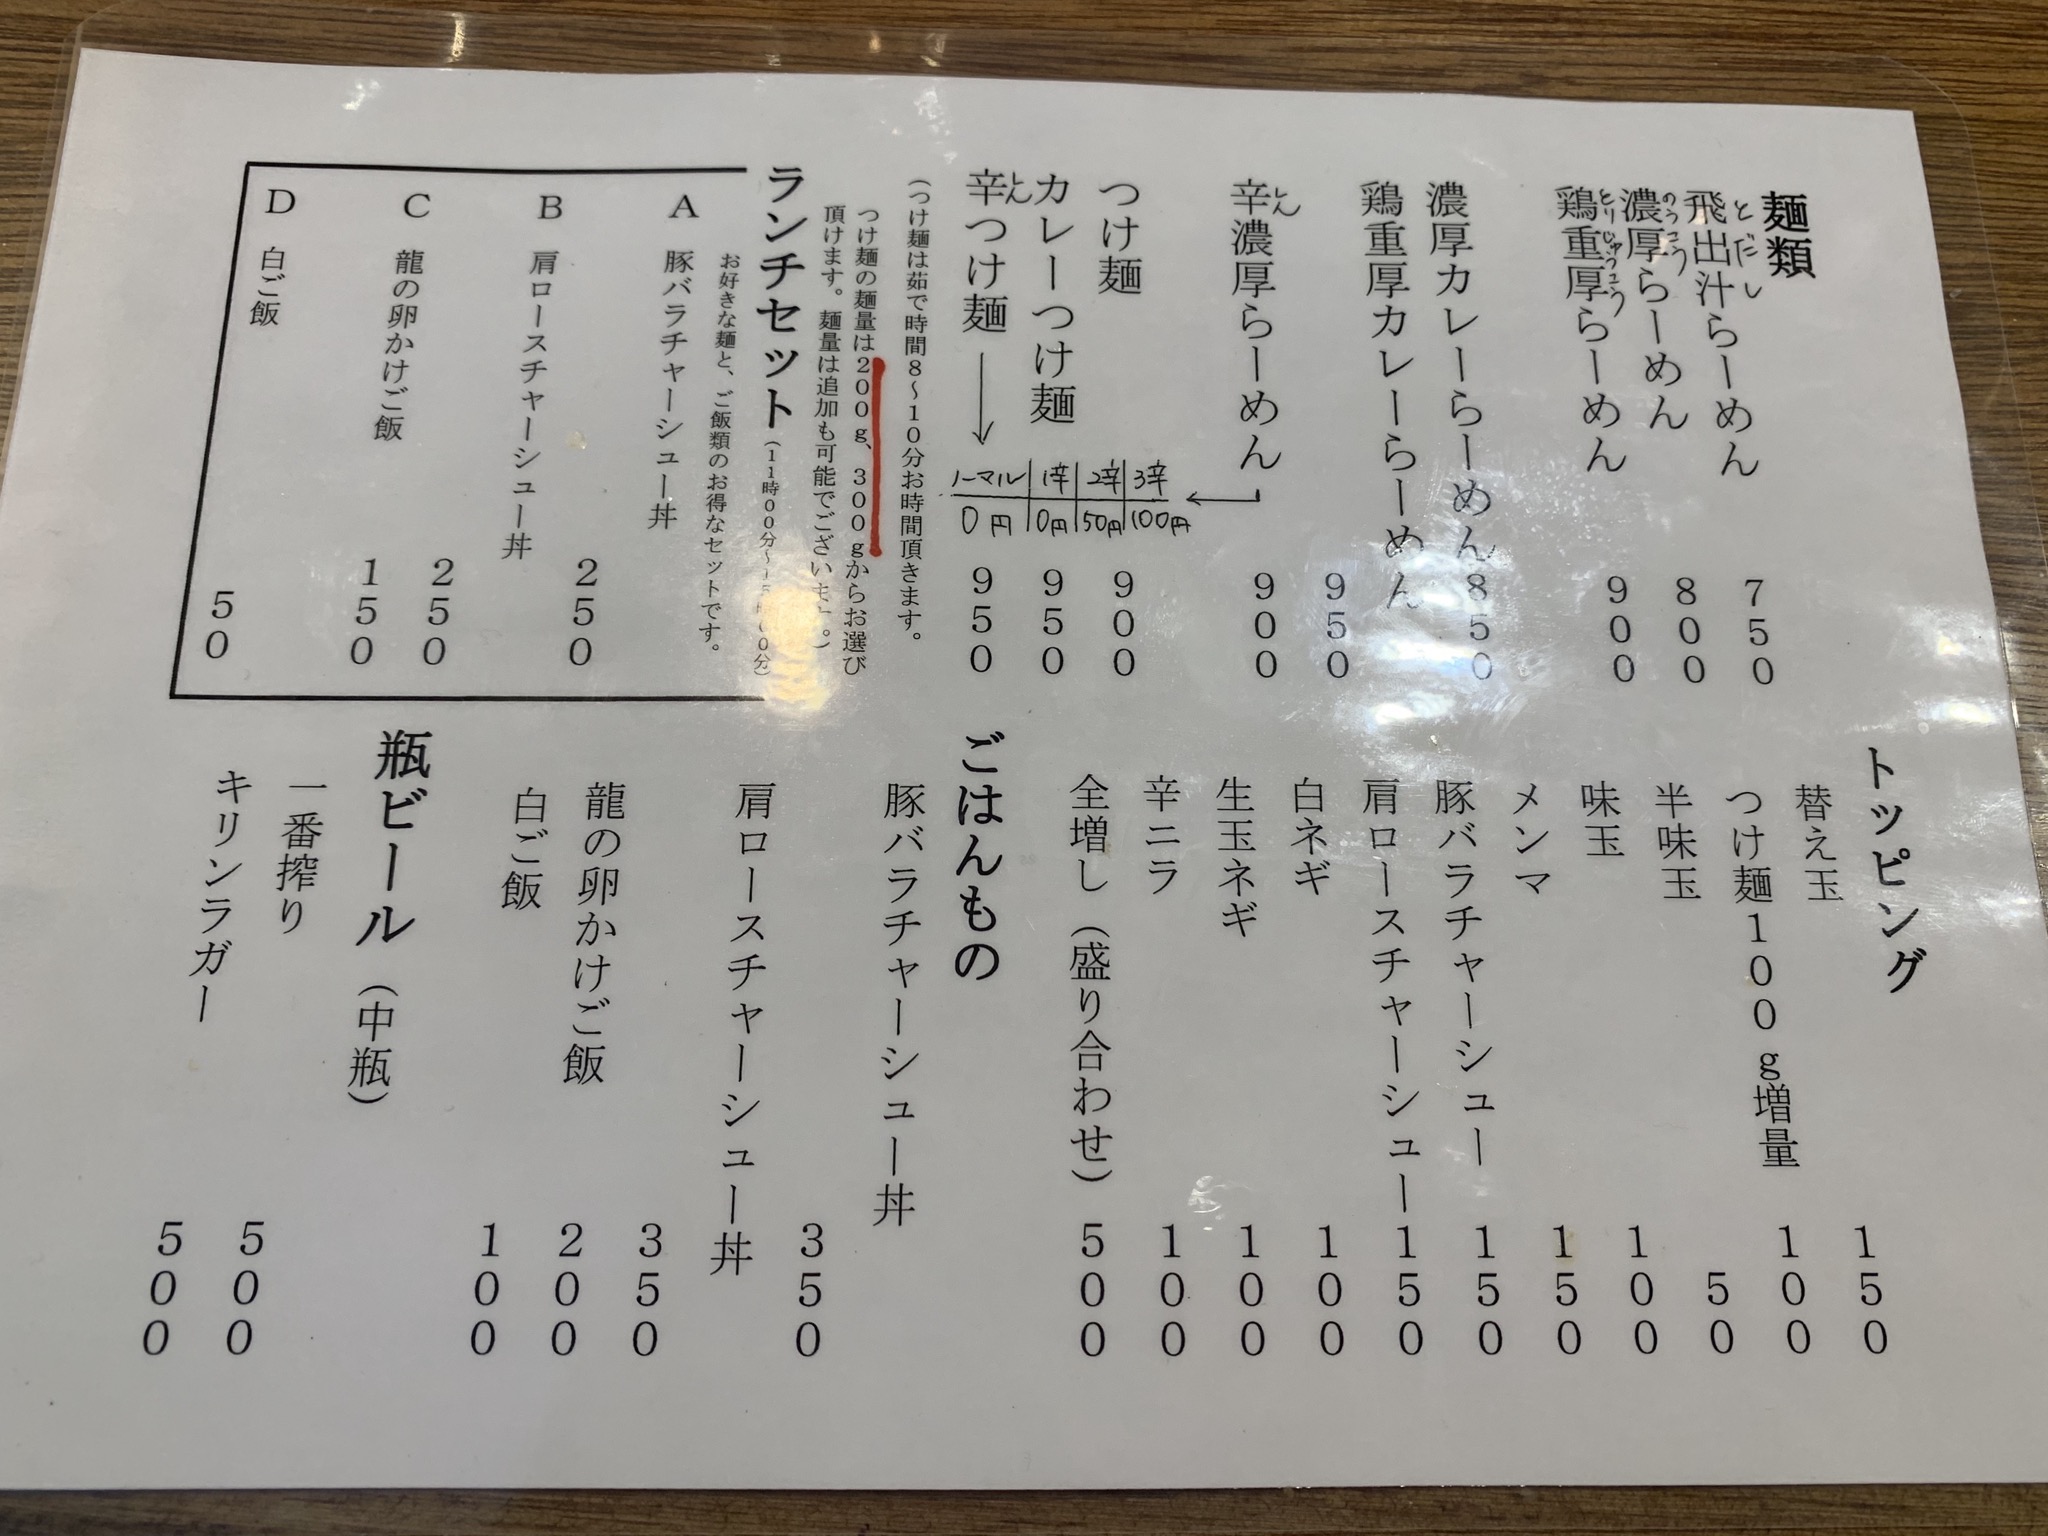 麺類
飛出汁らーめん 750
とだし
濃厚らーめん 800
のうこう
鶏重厚らーめん 900
とりじゅうこう
濃厚カレーらーめん 850
鶏重厚カレーらーめん 950
辛濃厚らーめん 900
とん
つけ麺 900
カレーつけ麺 950
辛つけ麺 950
とん
ノーマル 1辛 2辛 3辛
0円 0円 50円 100円
(つけ麺は茹で時間8~10分お時間頂きます。
つけ麺の麺量は200g、300gからお選び
頂けます。麺量は追加も可能でございます。)
ランチセット (11時00分~15時00分)
お好きな麺と、ご飯類のお得なセットです。
A 豚バラチャーシュー丼 250
B 肩ロースチャーシュー丼 250
C 龍の卵かけご飯 150
D 白ご飯 50
トッピング
替え玉 150
つけ麺100g増量 100
半味玉 50
味玉 100
メンマ 150
豚バラチャーシュー 150
肩ロースチャーシュー 150
白ネギ 100
生玉ネギ 100
辛ニラ 100
全増し(盛り合わせ) 500
ごはんもの
豚バラチャーシュー丼 350
肩ロースチャーシュー丼 350
龍の卵かけご飯 200
白ご飯 100
瓶ビール(中瓶)
一番搾り 500
キリンラガー 500